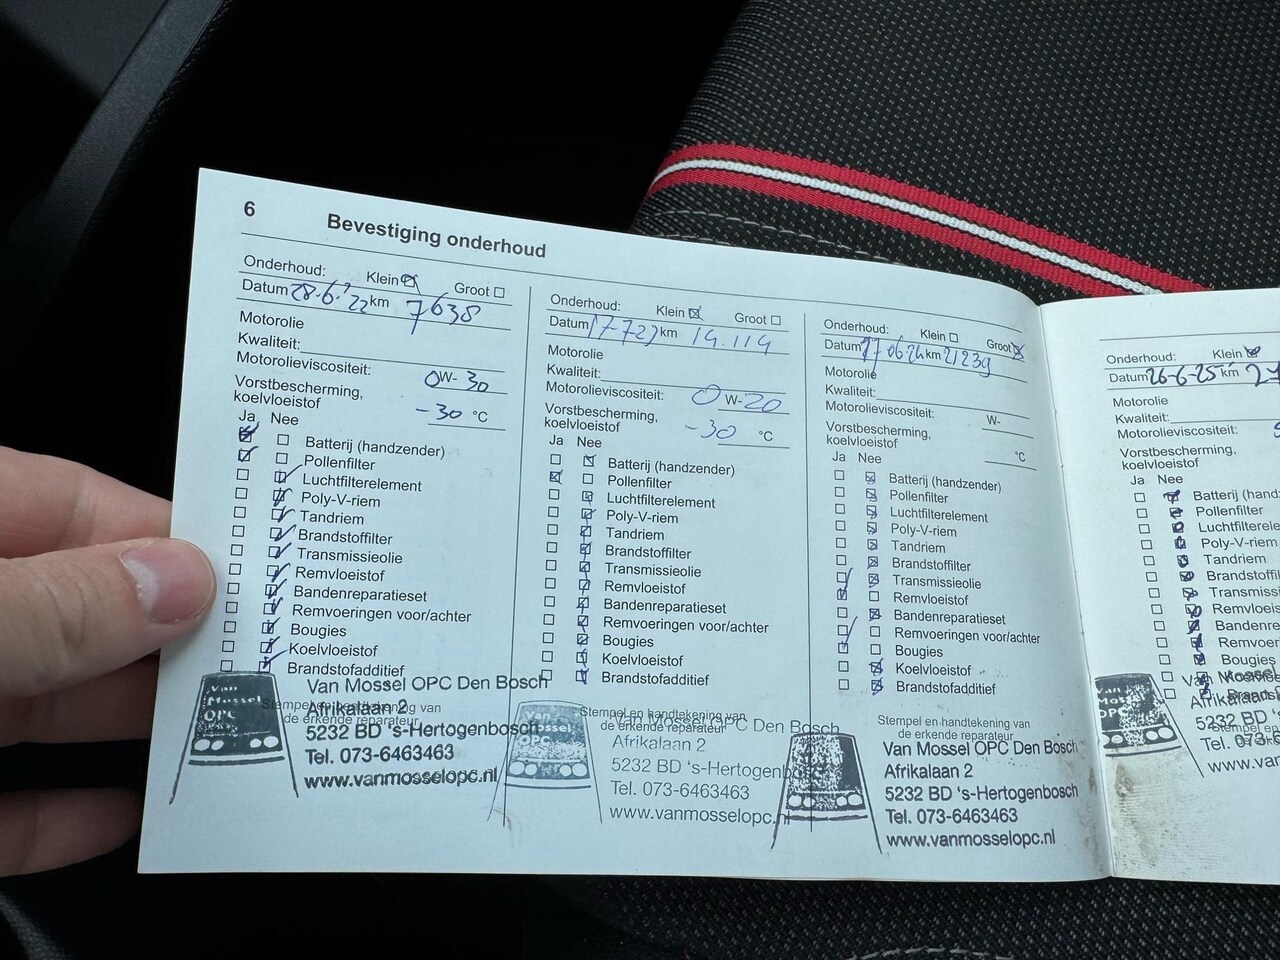 6
Bevestiging onderhoud
Onderhoud: Klein Groot
Datum 28-6-'22 km 7638
Motorolie
Kwaliteit:
Motorolieviscositeit: 0W-30
Vorstbescherming,
koelvloeistof -30 °C
Ja Nee
Batterij (handzender)
Pollenfilter
Luchtfilterelement
Poly-V-riem
Tandriem
Brandstoffilter
Transmissieolie
Remvloeistof
Bandenreparatieset
Remvoeringen voor/achter
Bougies
Koelvloeistof
Brandstofadditief
Stempel en handtekening van
de erkende reparateur
Van Mossel OPC
Van Mossel OPC Den Bosch
Afrikalaan 2
5232 BD 's-Hertogenbosch
Tel. 073-6463463
www.vanmosselopc.nl
Onderhoud: Klein Groot
Datum 17-7-23 km 14.114
Motorolie
Kwaliteit:
Motorolieviscositeit: 0W-20
Vorstbescherming,
koelvloeistof -30 °C
Ja Nee
Batterij (handzender)
Pollenfilter
Luchtfilterelement
Poly-V-riem
Tandriem
Brandstoffilter
Transmissieolie
Remvloeistof
Bandenreparatieset
Remvoeringen voor/achter
Bougies
Koelvloeistof
Brandstofadditief
Stempel en handtekening van
de erkende reparateur
Van Mossel OPC Den Bosch
Afrikalaan 2
5232 BD 's-Hertogenbosch
Tel. 073-6463463
www.vanmosselopc.nl
Onderhoud: Klein Groot
Datum 27-06-24 km 21239
Motorolie
Kwaliteit:
Motorolieviscositeit: W-
Vorstbescherming,
koelvloeistof °C
Ja Nee
Batterij (handzender)
Pollenfilter
Luchtfilterelement
Poly-V-riem
Tandriem
Brandstoffilter
Transmissieolie
Remvloeistof
Bandenreparatieset
Remvoeringen voor/achter
Bougies
Koelvloeistof
Brandstofadditief
Stempel en handtekening van
de erkende reparateur
Van Mossel OPC Den Bosch
Afrikalaan 2
5232 BD 's-Hertogenbosch
Tel. 073-6463463
www.vanmosselopc.nl
Onderhoud: Klein
Datum 26-6-25 km
Motorolie
Kwaliteit:
Motorolieviscositeit:
Vorstbescherming,
koelvloeistof
Ja Nee
Batterij (hand
Pollenfilter
Luchtfiltere
Poly-V-riem
Tandriem
Brandstoffi
Transmiss
Remvloeis
Bandenre
Remvoe
Bougies
Koelvloe
Brands
Afrikalaan
5232 BD
Tel. 073-6
www.van